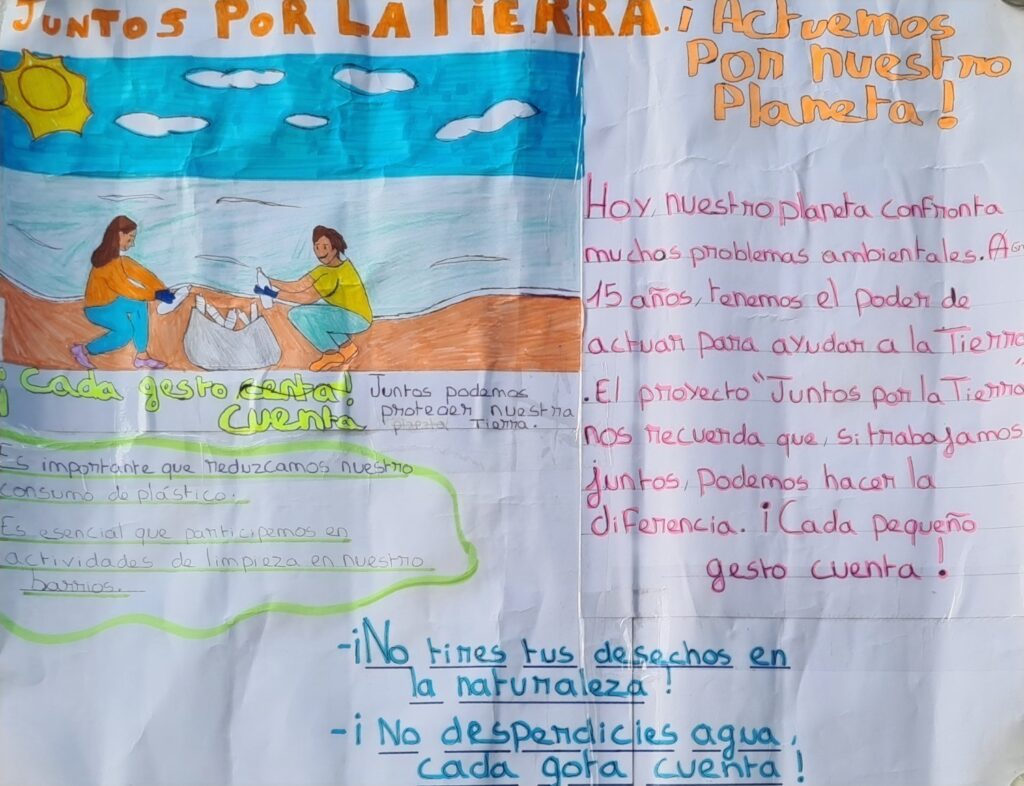 JUNTOS POR LA TIERRA.
¡Actuemos
Por nuestro
Planeta!
Hoy, nuestro planeta confronta
muchos problemas ambientales. A
15 años, tenemos el poder de
actuar para ayudar a la Tierra
. El proyecto "Juntos por la Tierra"
nos recuerda que, si trabajamos
juntos, podemos hacer la
diferencia. ¡Cada pequeño
gesto cuenta!
¡Cada gesto centa!
cuenta
Juntos podemos
proteger nuestra
planeta Tierra.
Es importante que reduzcamos nuestro
consumo de plástico.
Es esencial que participemos en
actividades de limpieza en nuestro
barrios.
-¡No tires tus desechos en
la naturaleza!
-¡No desperdicies agua,
cada gota cuenta!